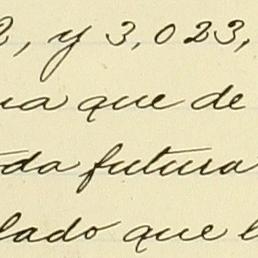 , y 3,023,
que de
futura
lado que